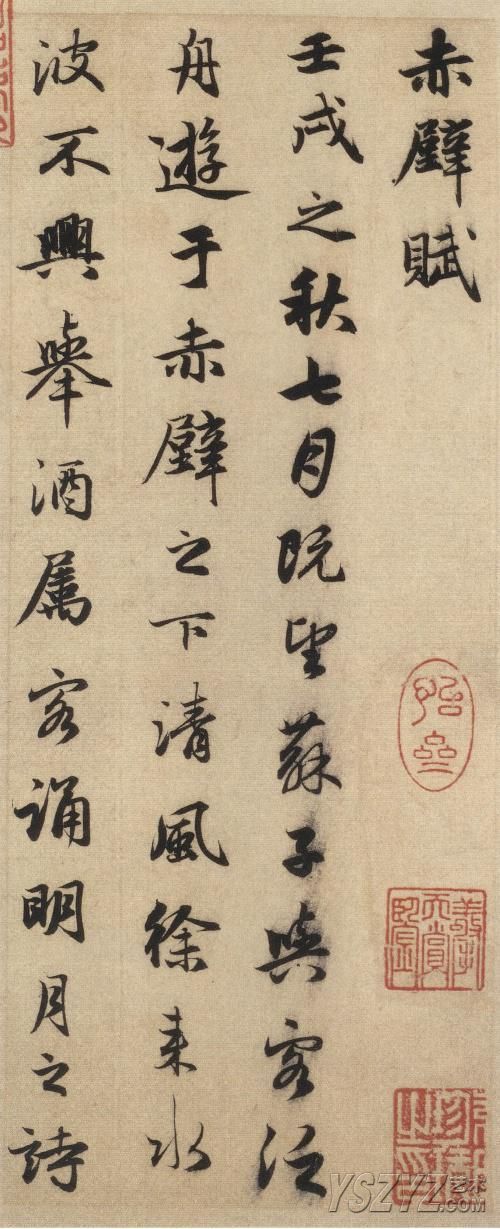 赤壁賦
壬戌之秋七月既望蘇子與客泛
舟遊于赤壁之下清風徐來水
波不興舉酒属客誦明月之詩
YSZYZ.COM